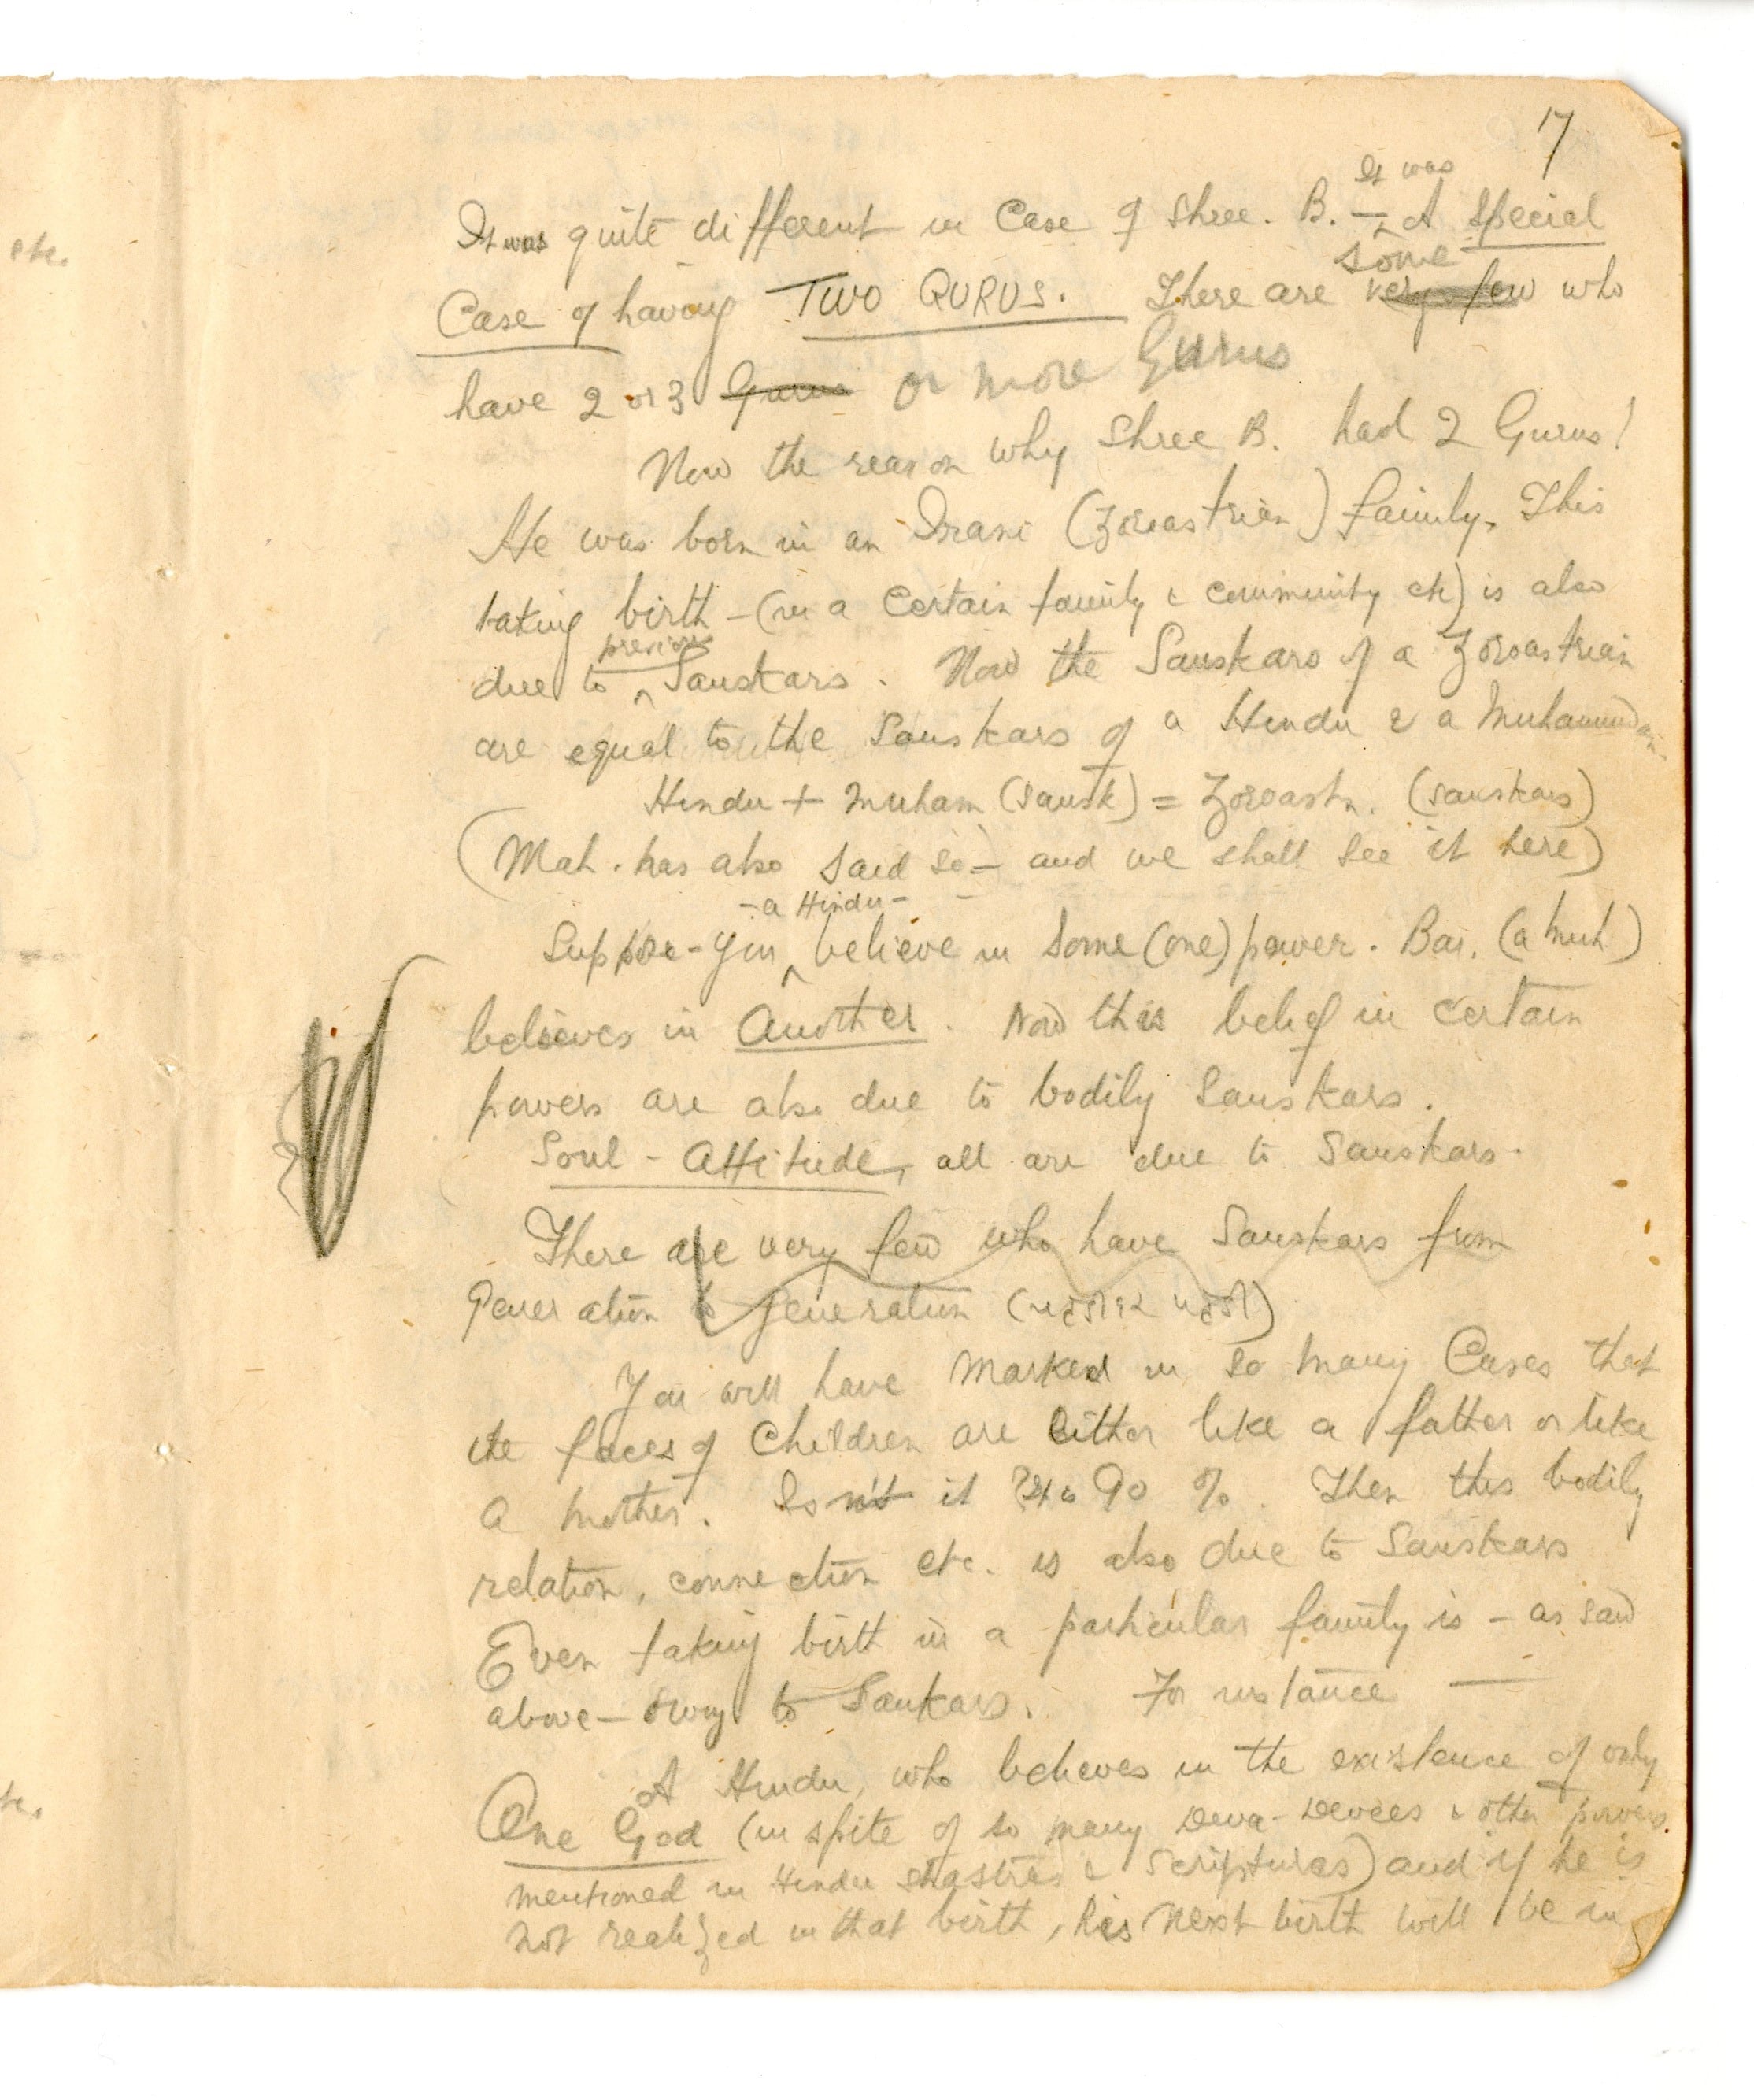 17
etc.
It was
It was quite different in Case of Shree. B. — A Special
some
Case of having TWO GURUS. There are very few who
have 2 or 3 Gurus or more Gurus
Now the reason why Shree B. had 2 Gurus!
He was born in an Irani (Zoroastrian) family. This
taking birth - (in a Certain family & community etc) is also
previous
due to ^ Sanskars. Now the Sanskars of a Zoroastrian
are equal to the Sanskars of a Hindu & a Muhammadan.
Hindu + Muham (Sansk) = Zoroastn. (Sanskars)
(Mah. has also said so — and we shall see it here)
- a Hindu -
Suppose - you ^ believe in some (one) power. Bai. (a Muh)
believes in Another. Now this belief in certain
powers are also due to bodily Sanskars.
Soul - Attitude, all are due to Sanskars.
There are very few who have Sanskars from
Generation to generation
You will have Marked in so many Cases that
the faces of Children are Either like a father or like
a mother. Isn't it? It is 90 %. Then this bodily
relation, connection etc. is also due to Sanskars
Even taking birth in a particular family is - as said
above - owing to Sankars. For instance —
A Hindu, who believes in the existence of only
One God (in spite of so many Deva-Devees & other powers
mentioned in Hindu Shastras & Scriptures) and if he is
not realized in that birth, his next birth will be in